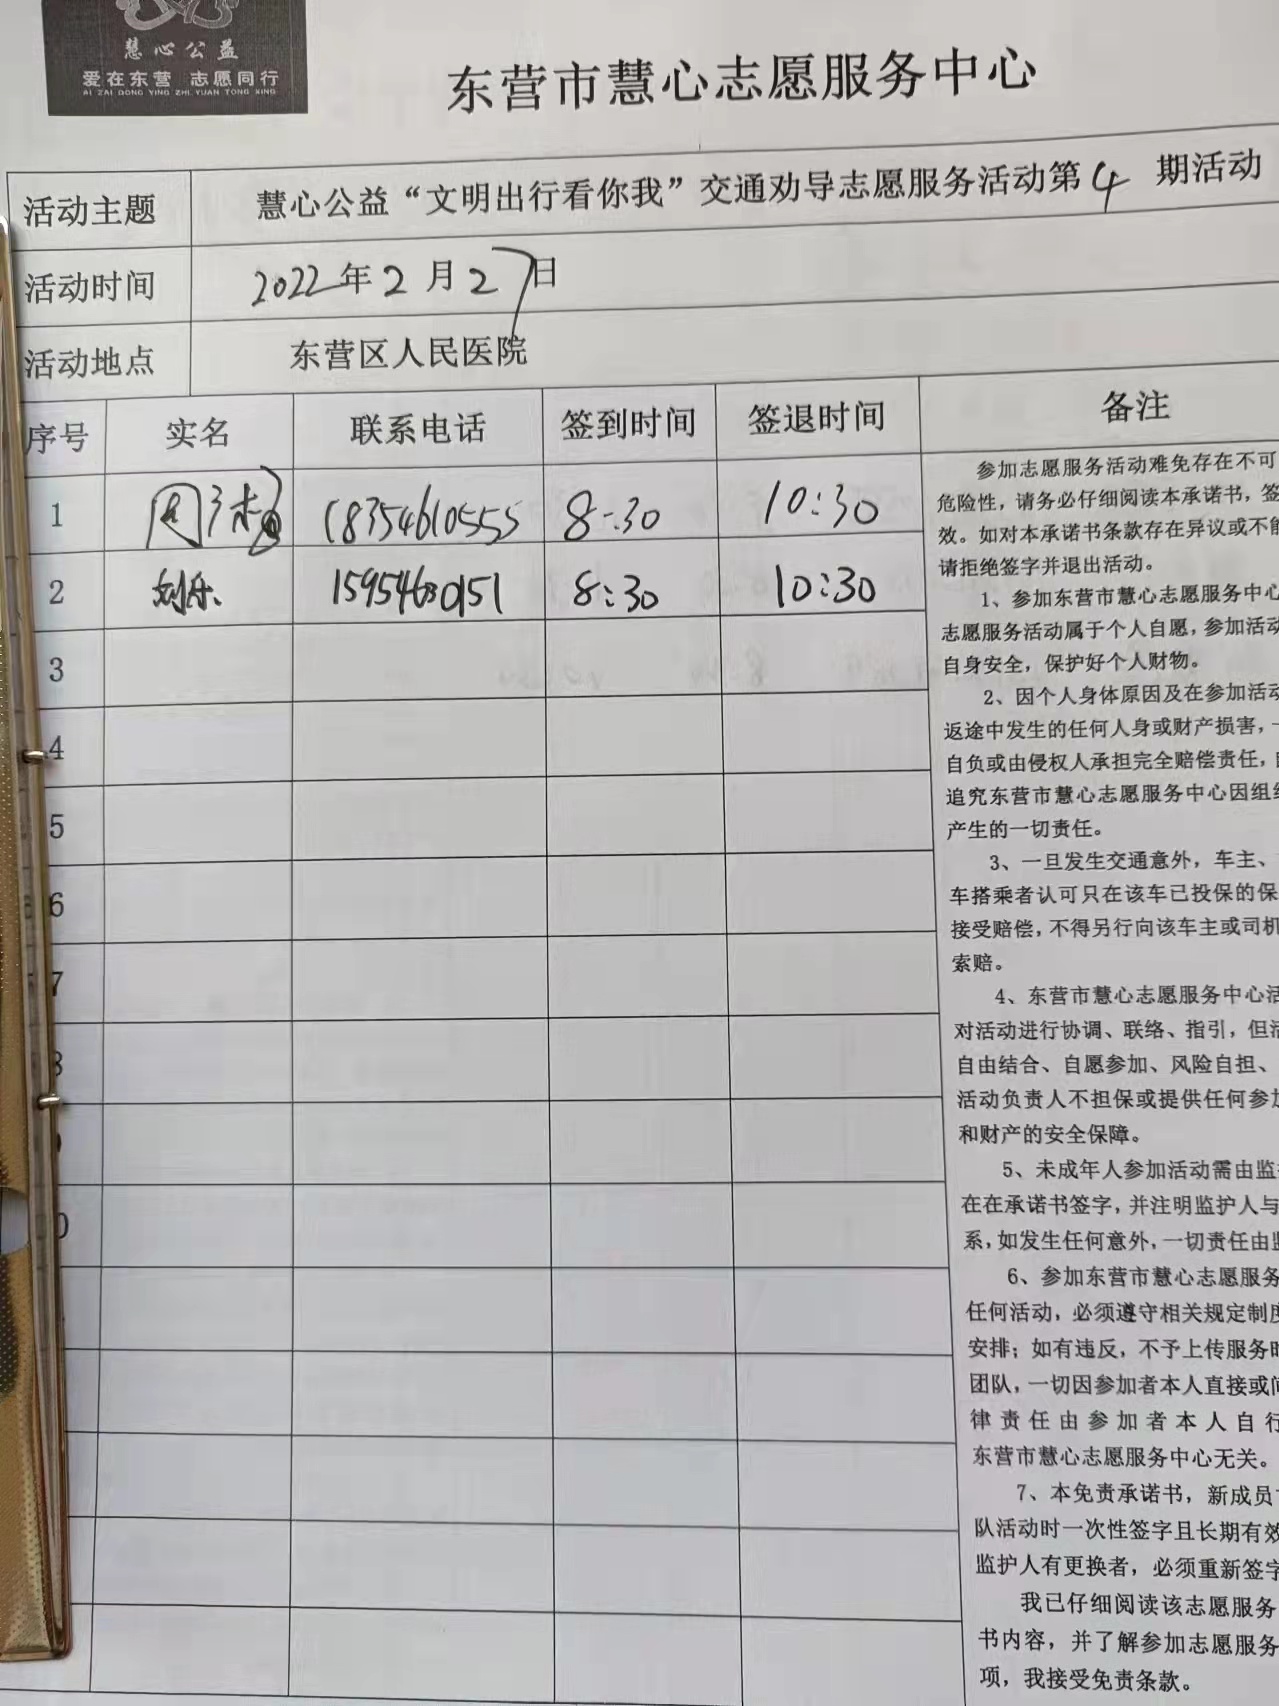 慧心公益
爱在东营 志愿同行
AI ZAI DONG YING ZHI YUAN TONG XING
东营市慧心志愿服务中心
活动主题 慧心公益“文明出行看你我”交通劝导志愿服务活动第4期活动
活动时间 2022年2月27日
活动地点 东营区人民医院
序号 实名 联系电话 签到时间 签退时间 备注
1 周 18354610555 8:30 10:30
2 刘乐 15954630151 8:30 10:30
3
4
5
6
7
8
参加志愿服务活动难免存在不可
危险性，请务必仔细阅读本承诺书，签
效。如对本承诺书条款存在异议或不能
请拒绝签字并退出活动。
1、参加东营市慧心志愿服务中心
志愿服务活动属于个人自愿，参加活动
自身安全，保护好个人财物。
2、因个人身体原因及在参加活动
返途中发生的任何人身或财产损害，
自负或由侵权人承担完全赔偿责任，
追究东营市慧心志愿服务中心因组织
产生的一切责任。
3、一旦发生交通意外，车主、
车搭乘者认可只在该车已投保的保
接受赔偿，不得另行向该车主或司机
索赔。
4、东营市慧心志愿服务中心活
对活动进行协调、联络、指引，但活
自由结合、自愿参加、风险自担、
活动负责人不担保或提供任何参加
和财产的安全保障。
5、未成年人参加活动需由监
在在承诺书签字，并注明监护人与
系，如发生任何意外，一切责任由监
6、参加东营市慧心志愿服务
任何活动，必须遵守相关规定制度
安排；如有违反，不予上传服务时
团队，一切因参加者本人直接或间
律责任由参加者本人自行
东营市慧心志愿服务中心无关。
7、本免责承诺书，新成员
队活动时一次性签字且长期有效
监护人有更换者，必须重新签字
我已仔细阅读该志愿服务
书内容，并了解参加志愿服务
项，我接受免责条款。